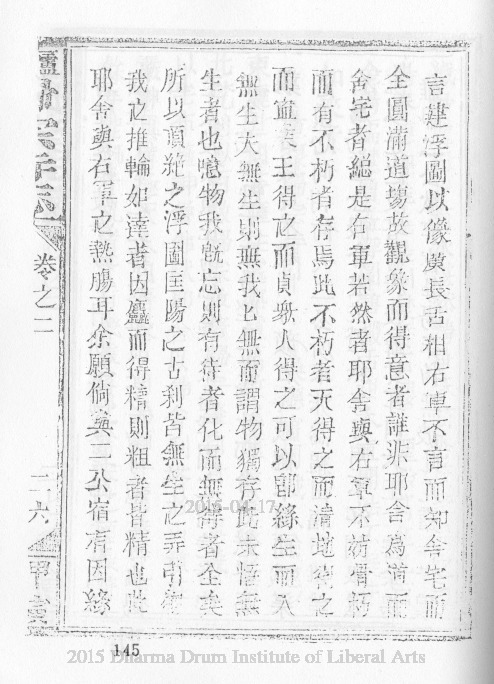 言建浮圖以像廣長舌相右軍不言而知舍宅而
全圓滿道場故觀象而得意者誰非耶舍為道而
舍宅者總是右軍若然者耶舍與右軍不妨骨朽
而有不朽者存焉此不朽者天得之而清地得之
而寧矣王得之而貞眾人得之可以即緣生而入
無生夫無生則無我也無我而謂物獨存此未悟無
生者也噫物我既忘則有待者化而無待者全矣
所以頂絶之浮圖匡陽之古刹皆無生之
我之推輪如達者因麤而得精則粗者皆精也此
耶舍與右軍之熱腸耳余願倘與二公宿有因緣
廬山
卷之二
二六
甲
2016-04-17
145
2015 Dharma Drum Institute of Liberal Arts